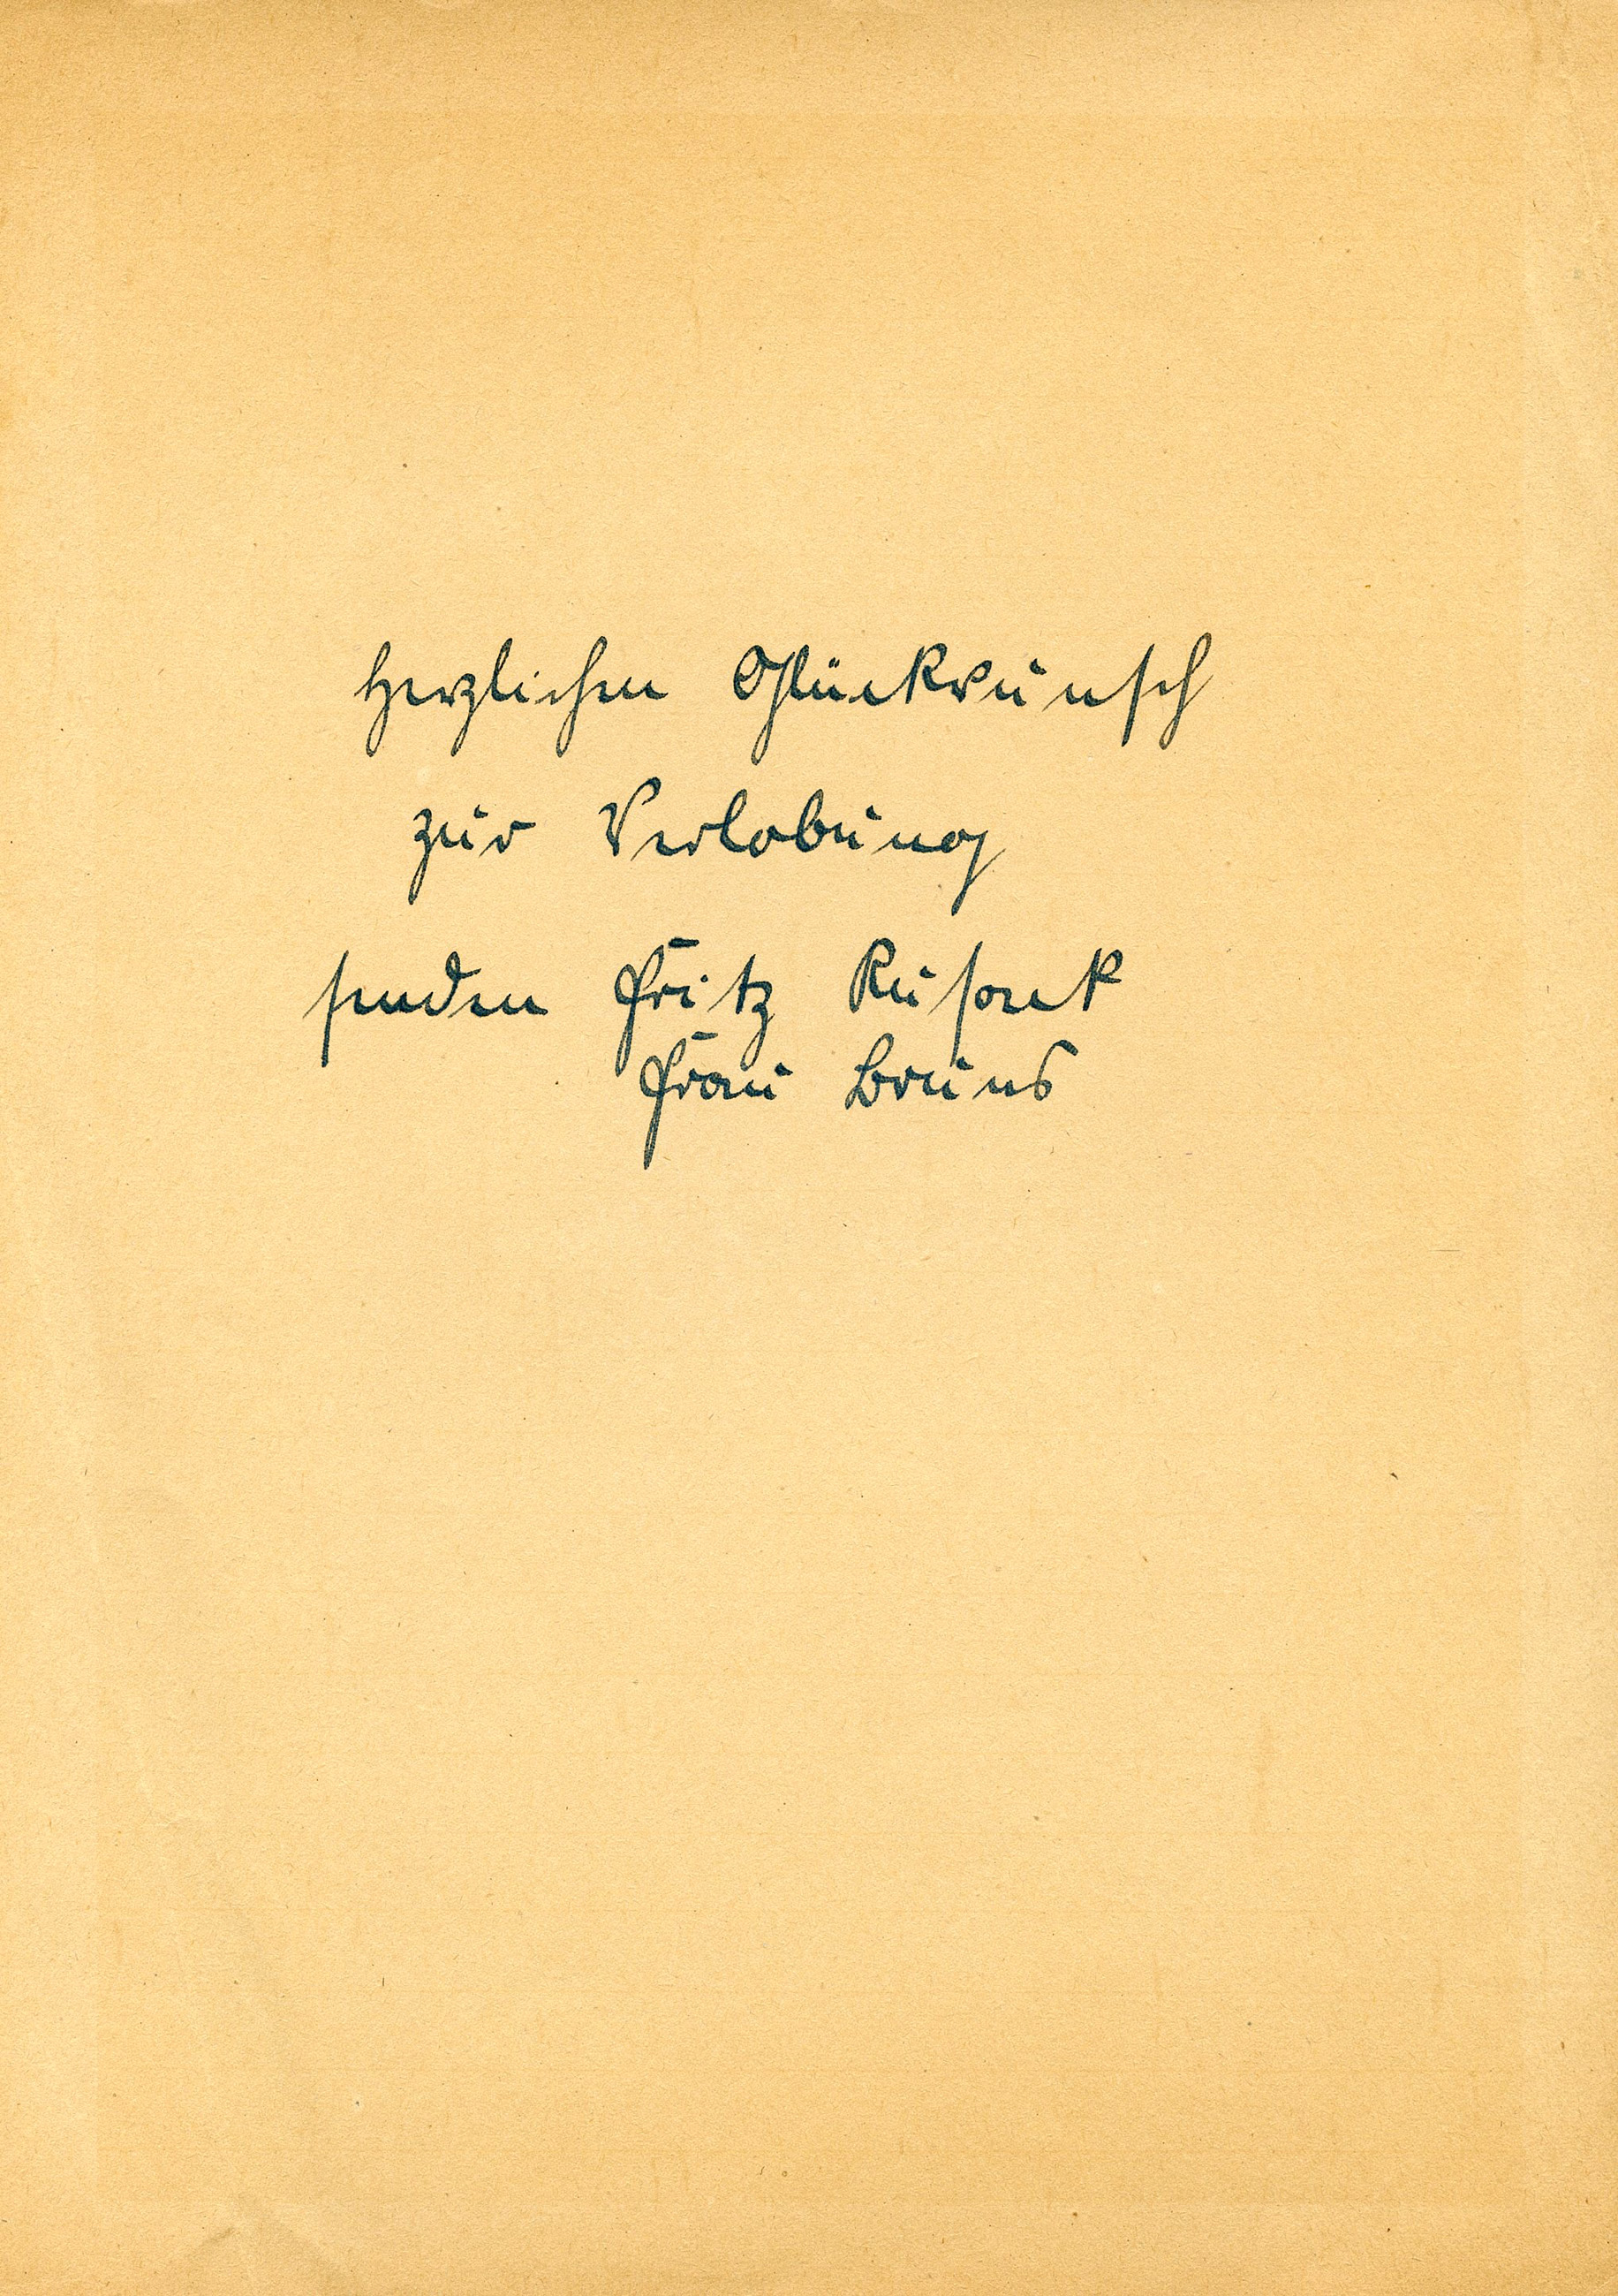 Herzlichen Glückwunsch
zur Verlobung
senden Fritz
Frau Bruns